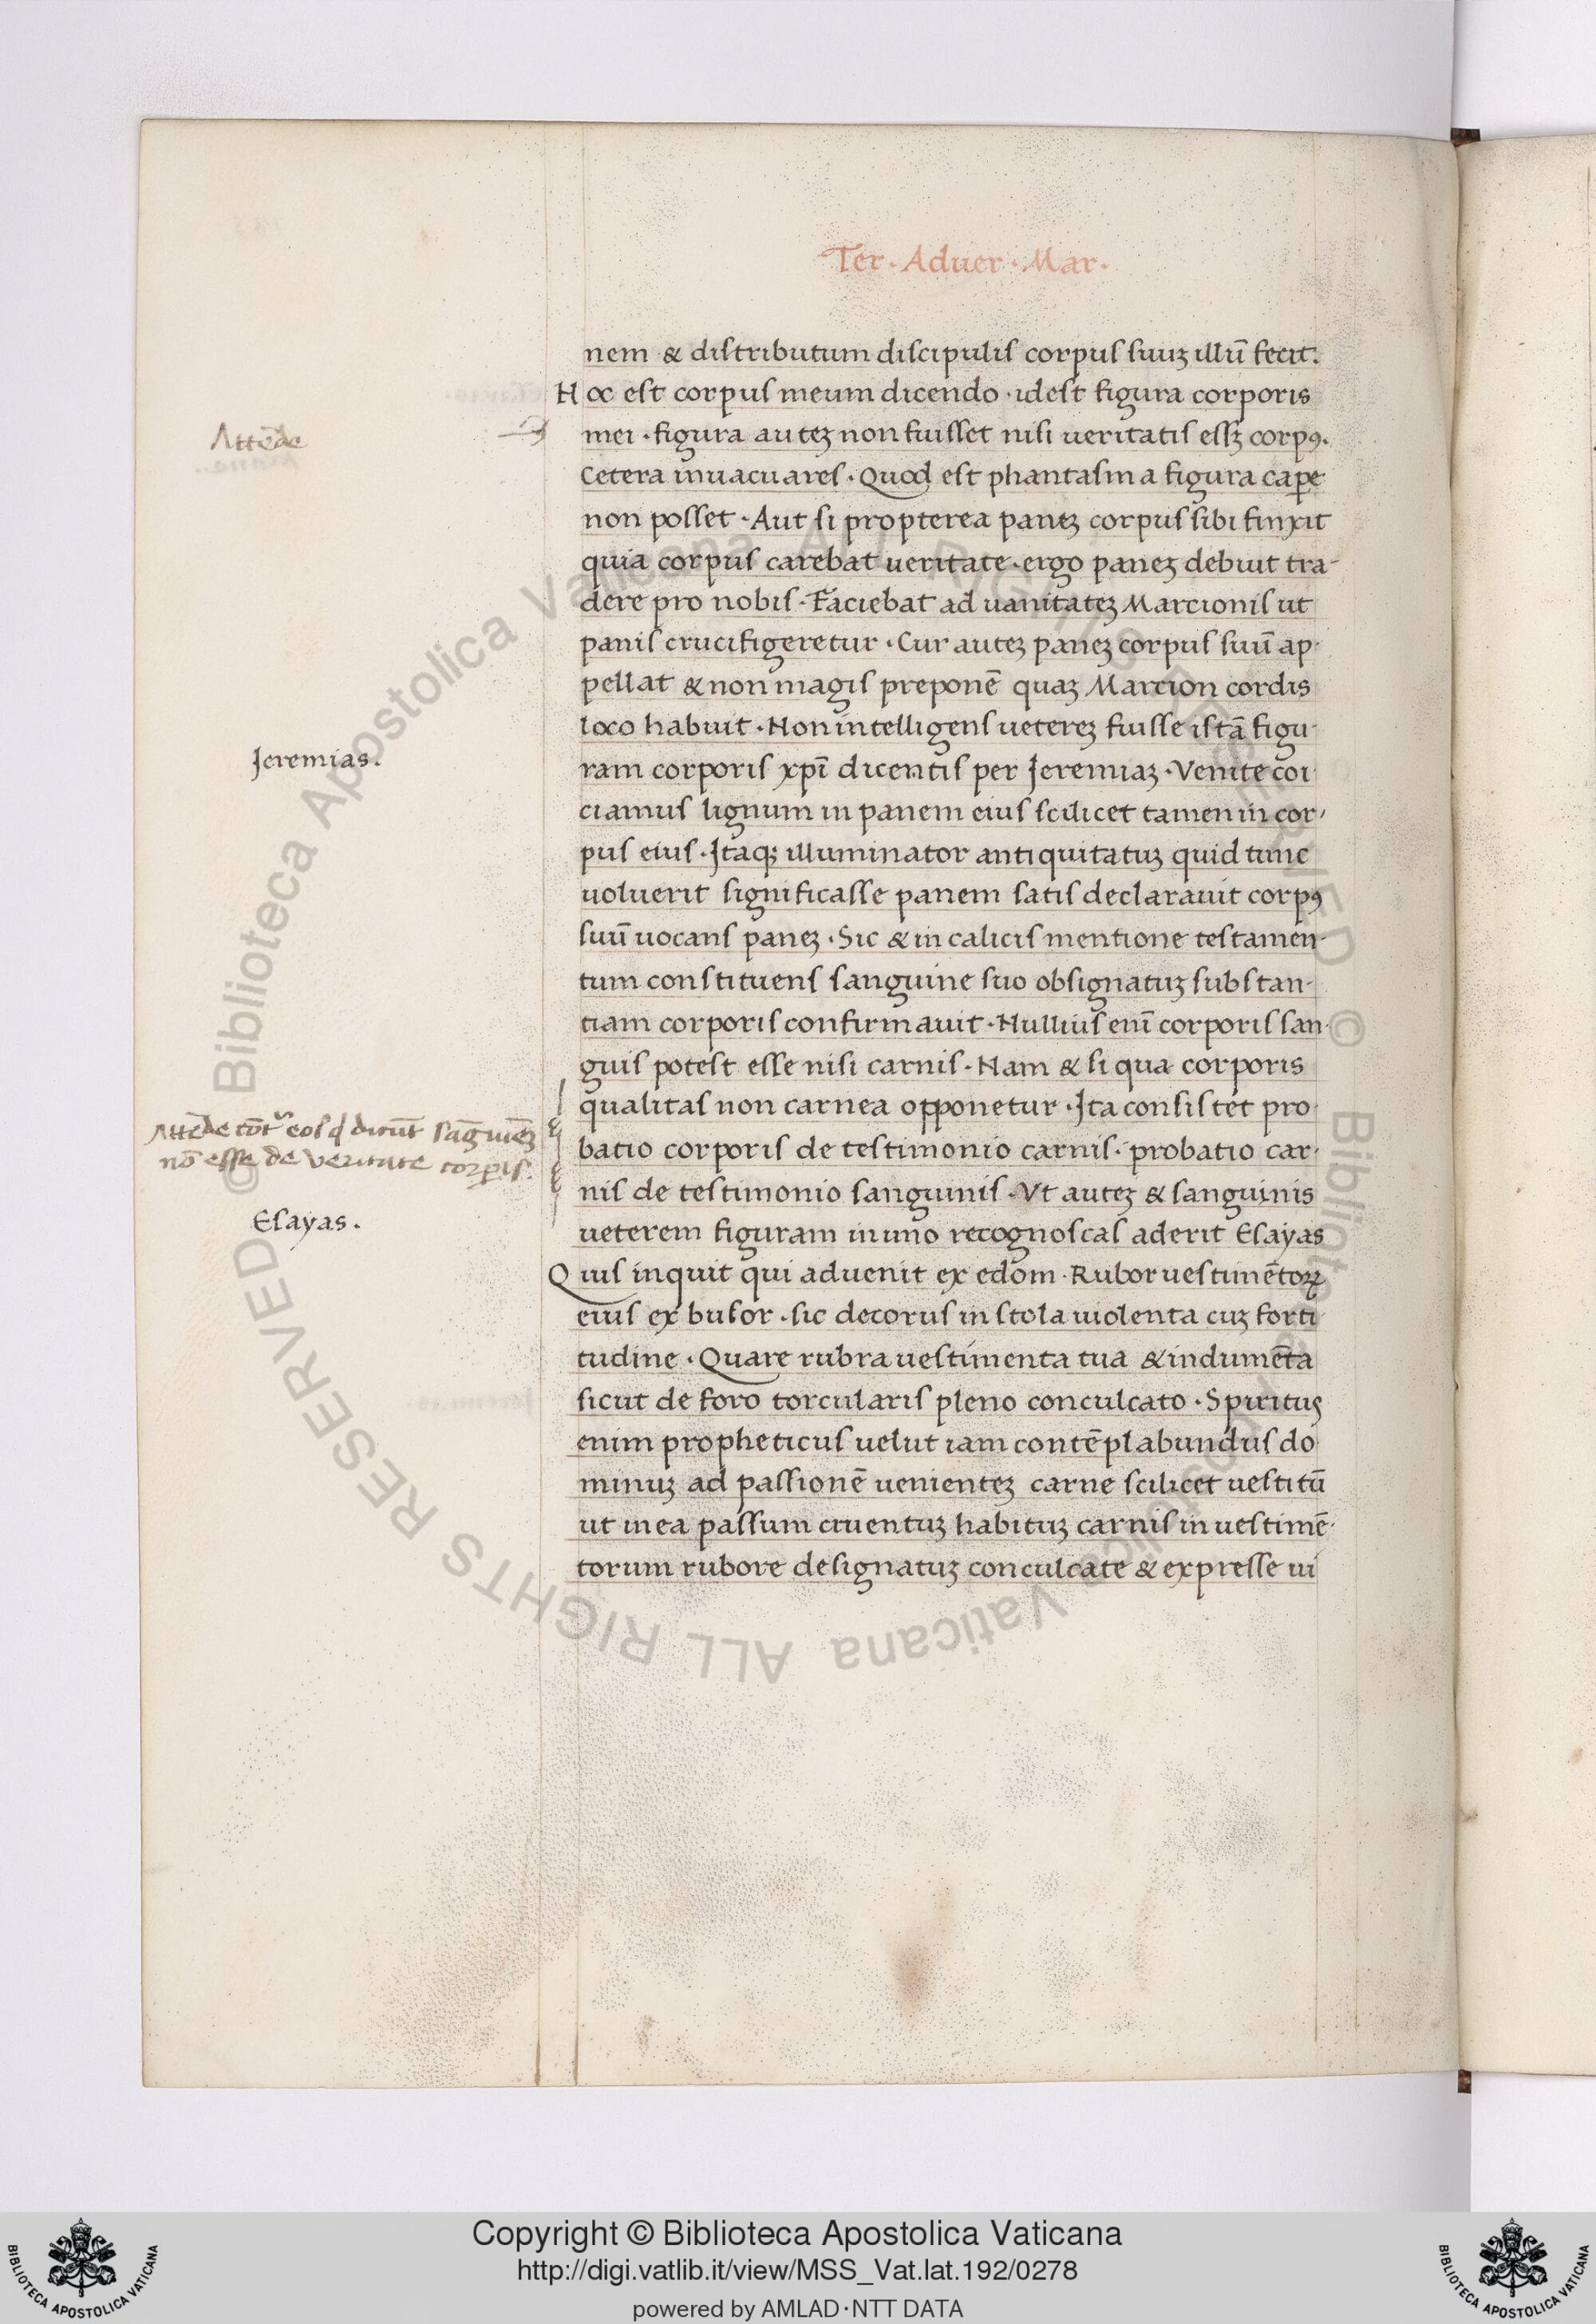 Ter · Aduer · Mar ·
nem & diſtributum diſcipuliſ corpuſ ſuuꝫ illū fecit.
Hoc eſt corpuſ meum dicendo · ideſt figura corporis
Attēde
mei · figura auteꝫ non fuiſſet niſi ueritatiſ eſſꝫ corpꝰ.
Cetera inuacuareſ · Quod eſt phantaſma figura caꝑe
non poſſet · Aut ſi propterea paneꝫ corpuſ ſibi finxit
quia corpuſ carebat ueritate · ergo paneꝫ debuit tra-
dere pro nobiſ · Faciebat ad uanitateꝫ Marcioniſ ut
paniſ crucifigeretur · Cur auteꝫ paneꝫ corpuſ ſuū ap-
pellat & non magiſ preponē quaꝫ Marcion cordis
loco habuit · Non intelligenſ uetereꝫ fuiſſe iſtā figu-
Jeremias.
ram corporiſ xpī dicentiſ per Jeremiaꝫ · Venite coi-
ciamuſ lignum in panem eiuſ ſcilicet tamen in cor-
puſ eiuſ · Itaqꝫ illuminator antiquitatuꝫ quid tunc
uoluerit ſignificaſſe panem ſatiſ declarauit corpꝰ
ſuū uocanſ paneꝫ · Sic & in caliciſ mentione teſtamen-
tum conſtituenſ ſanguine ſuo obſignatuꝫ ſubſtan-
tiam corporiſ confirmauit · Nulliuſ enī corporiſ ſan-
guiſ poteſt eſſe niſi carniſ · Nam & ſi qua corporis
qualitaſ non carnea opponetur · Ita conſiſtet pro-
Attēde cōt eoſ q dicūt ſāguineꝫ
nō eſſe de veritate corꝑiſ.
batio corporiſ de teſtimonio carniſ · probatio car-
niſ de teſtimonio ſanguiniſ · Vt auteꝫ & ſanguinis
Eſayas.
ueterem figuram in uino recognoſcaſ aderit Eſayas
Quiſ inquit qui aduenit ex edom · Rubor ueſtimētoꝝ
eiuſ ex buſor · ſic decoruſ in ſtola uiolenta cuꝫ forti
tudine · Quare rubra ueſtimenta tua & indumēta
ſicut de foro torculariſ pleno conculcato · Spirituſ
enim propheticuſ uelut iam contēplabunduſ do
minuꝫ ad paſſionē uenienteꝫ carne ſcilicet ueſtitū
ut in ea paſſum cruentuꝫ habituꝫ carniſ in ueſtimē-
torum rubore deſignatuꝫ conculcate & expreſſe ui
© Biblioteca Apostolica Vaticana ALL RIGHTS RESERVED © Biblioteca Apostolica Vaticana ALL RIGHTS RESERVED
Copyright © Biblioteca Apostolica Vaticana
http://digi.vatlib.it/view/MSS_Vat.lat.192/0278
powered by AMLAD·NTT DATA
BIBLIOTECA APOSTOLICA VATICANA
BIBLIOTECA APOSTOLICA VATICANA